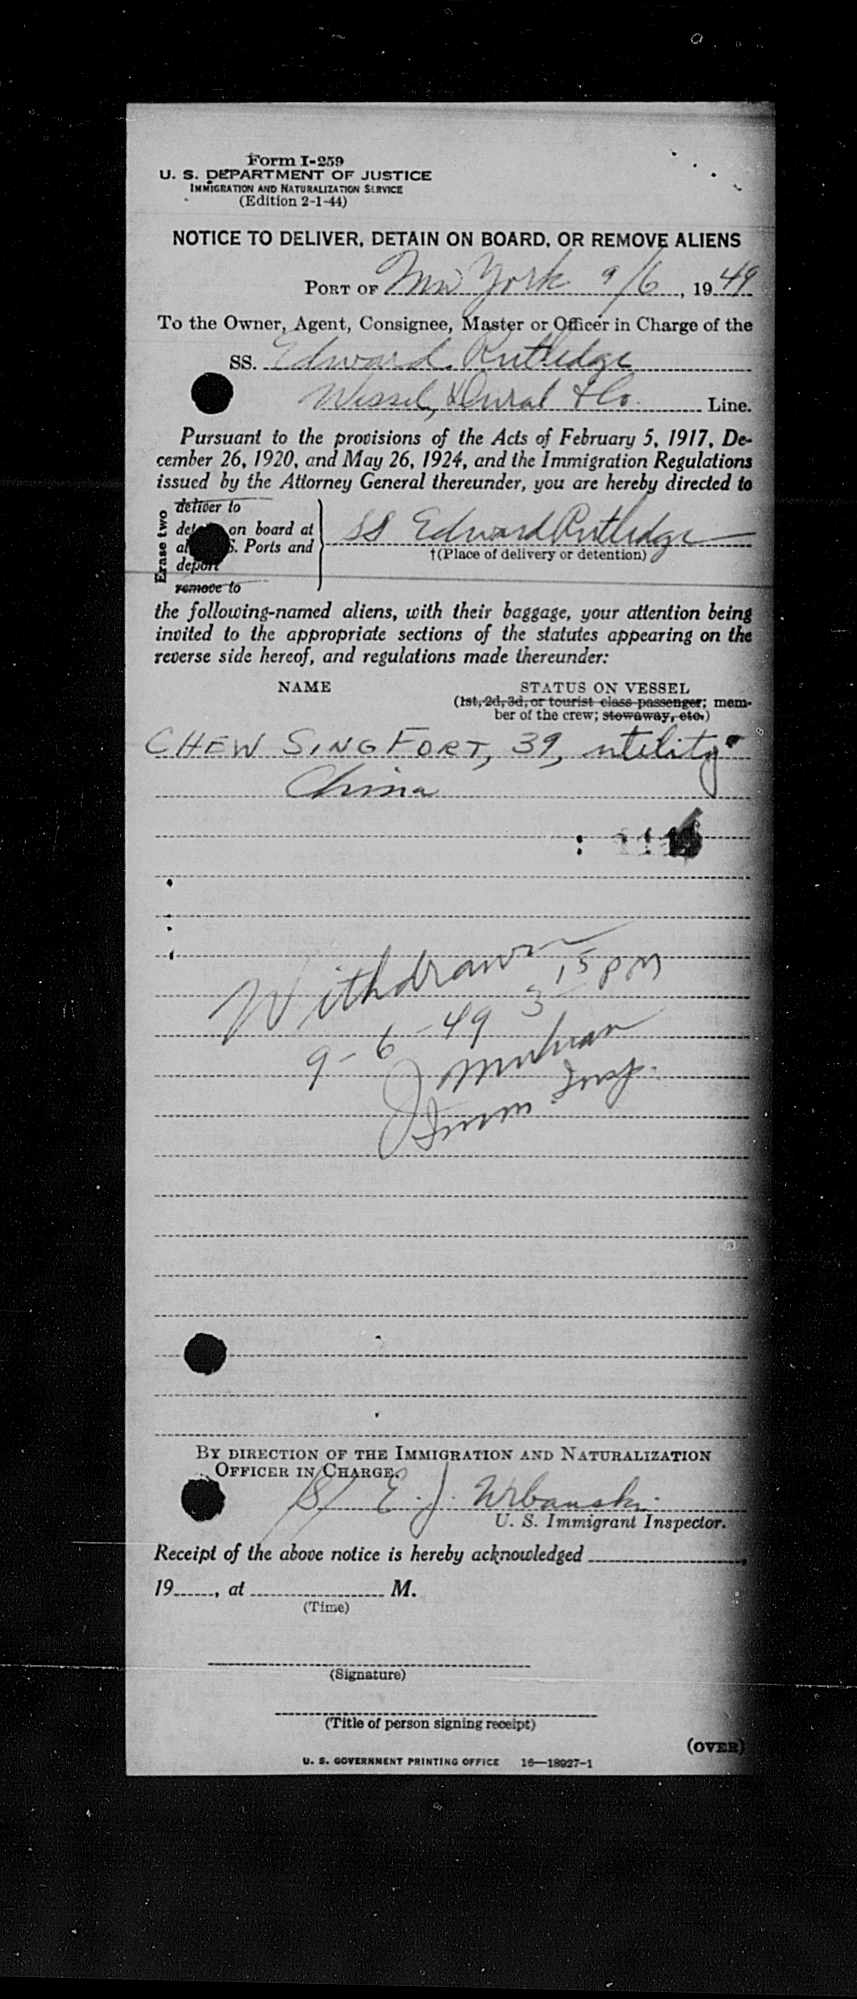 Form I-259
U. S. DEPARTMENT OF JUSTICE
IMMIGRATION AND NATURALIZATION SERVICE
(Edition 2-1-44)
NOTICE TO DELIVER, DETAIN ON BOARD, OR REMOVE ALIENS
PORT OF New York 9/6, 1949
To the Owner, Agent, Consignee, Master or Officer in Charge of the
SS. Edward Rutledge
Wessel, Duval & Co. Line.
Pursuant to the provisions of the Acts of February 5, 1917, De-
cember 26, 1920, and May 26, 1924, and the Immigration Regulations
issued by the Attorney General thereunder, you are hereby directed to
Erase two
deliver to
on board at
Ports and
deport
remove to
SS Edward Rutledge
†(Place of delivery or detention)
the following-named aliens, with their baggage, your attention being
invited to the appropriate sections of the statutes appearing on the
reverse side hereof, and regulations made thereunder:
NAME STATUS ON VESSEL
(1st, 2d, 3d, or tourist class passenger; mem-
ber of the crew; stowaway, etc.)
CHEW SING FORT, 39, utility
China
Withdrawn
9-6-49 3 15 PM
J
Imm Insp.
BY DIRECTION OF THE IMMIGRATION AND NATURALIZATION
OFFICER IN CHARGE.
S/ E. J. Urbanski
U. S. Immigrant Inspector.
Receipt of the above notice is hereby acknowledged
19 , at M.
(Time)
(Signature)
(Title of person signing receipt)
(OVER)
U. S. GOVERNMENT PRINTING OFFICE 16—18927-1